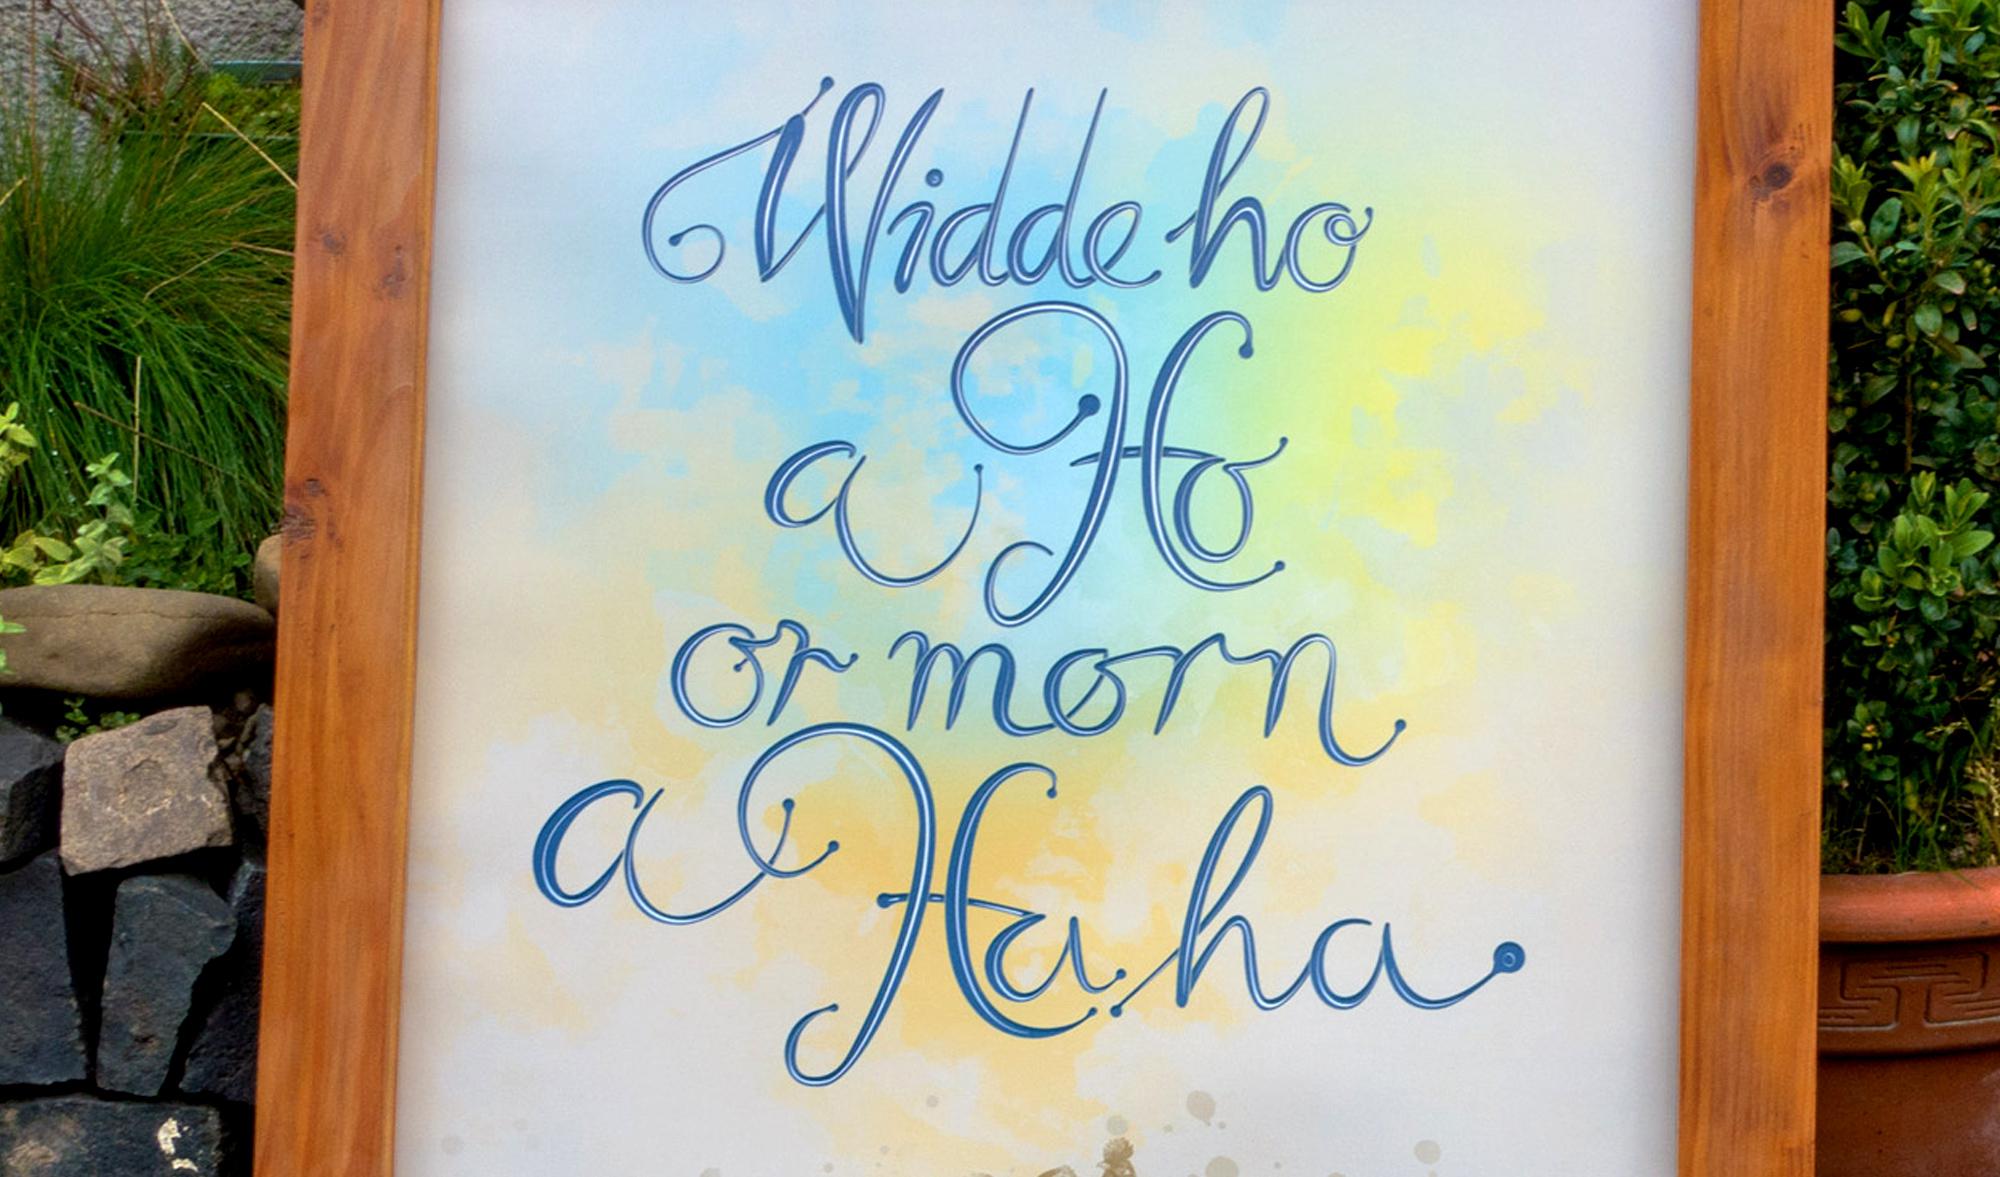 Widde ho
a Ho
or morn
a Ha ha